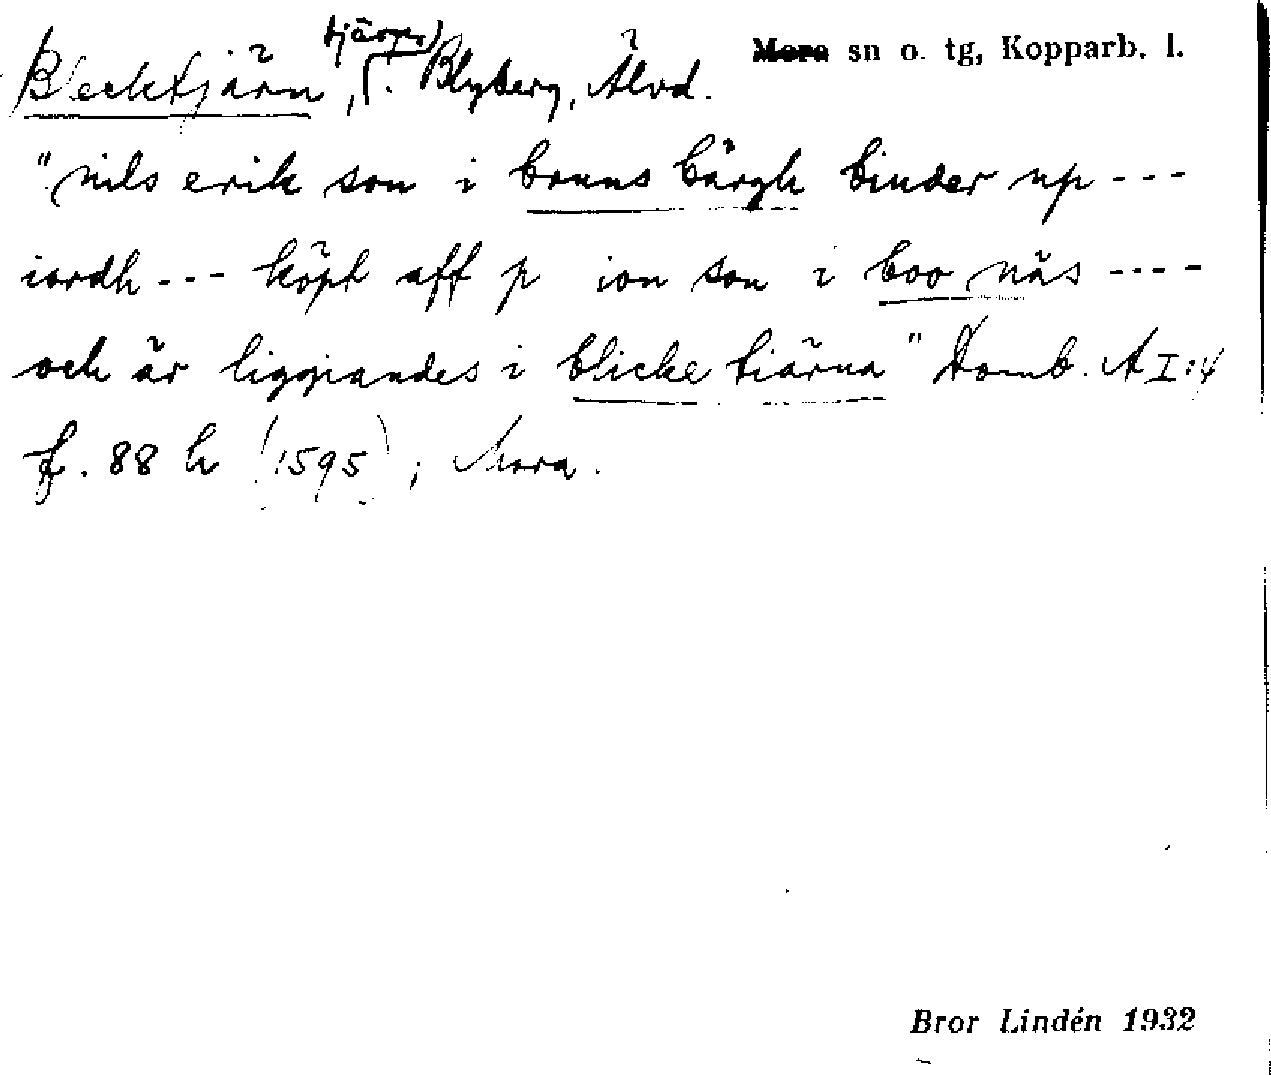 Blecktjärn, tjärn, f. Blyberg, Älvd.
Mora sn o. tg, Kopparb. l.
"nils erik son i bonns bärgh binder up ---
iordh --- köpt aff p ion son i boo näs ----
och är liggiandes i blicke tiärna" Domb. A I:4
f. 88 h (1595), Mora.
Bror Lindén 1932